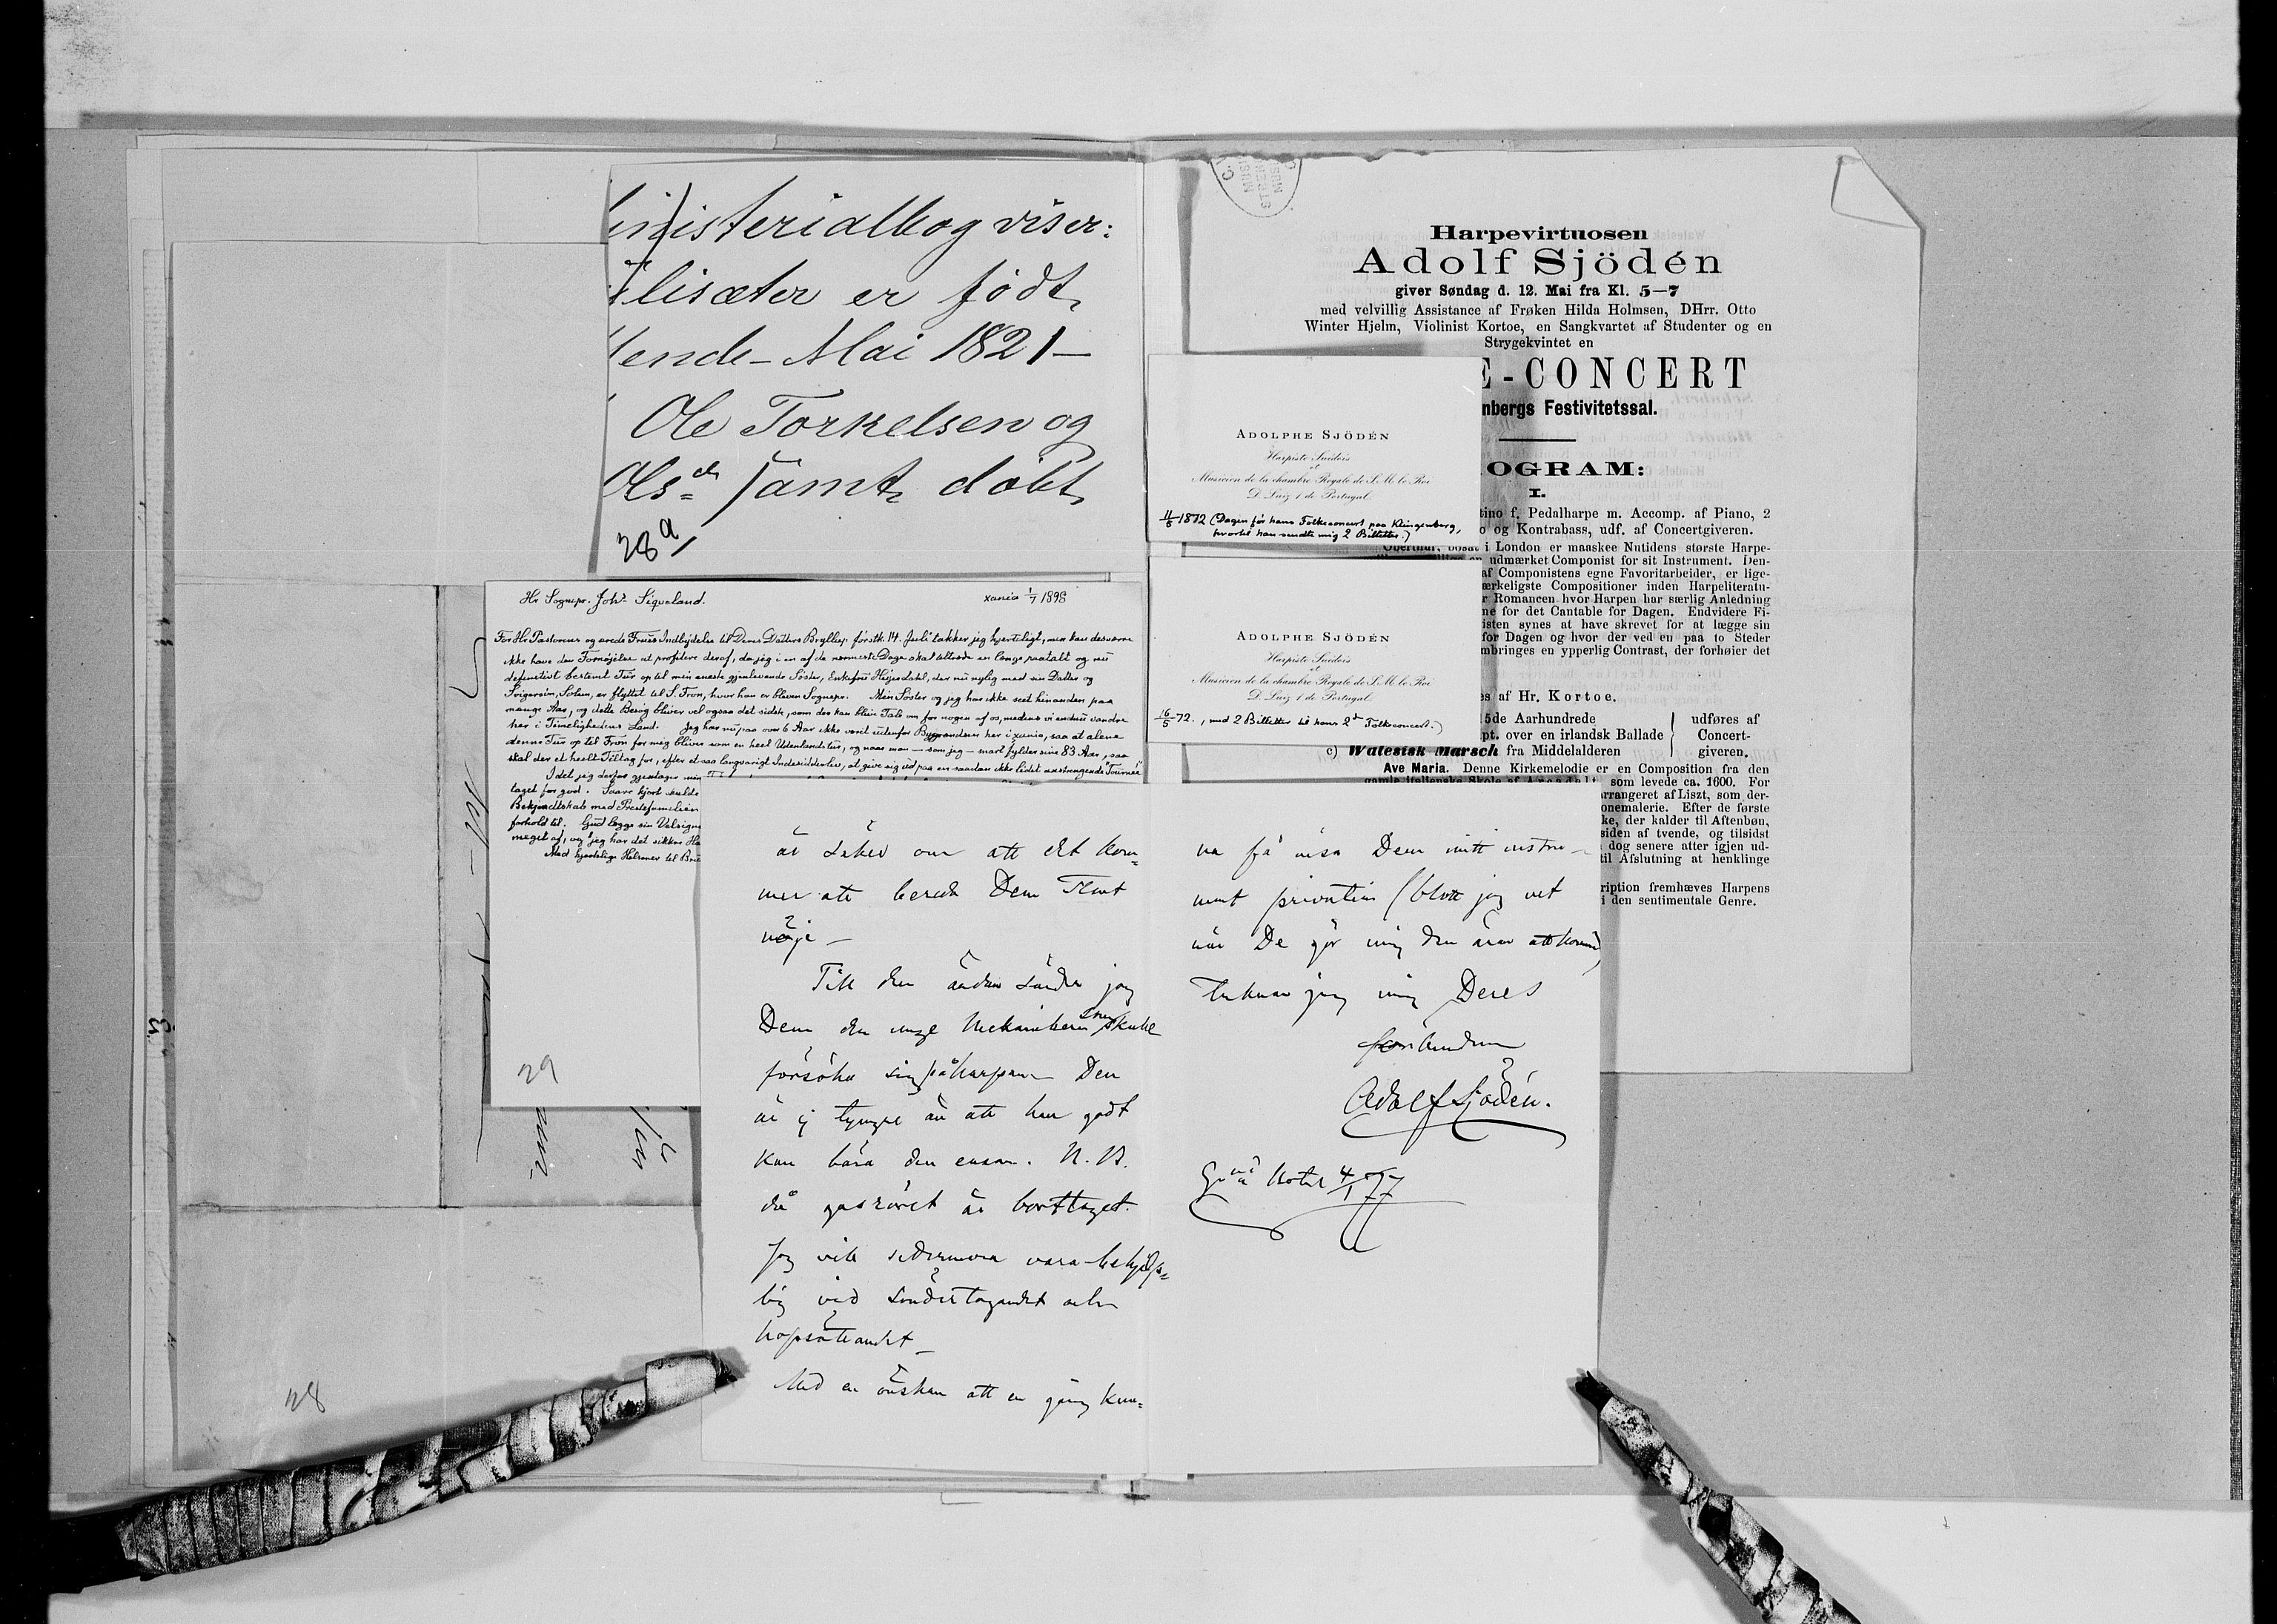 inisterialbog viser:
lisæter er födt
ende Mai 1821 —
Ole Torkelsen og
Olsdr samt döbt
28a
Hr Sognepr. Johs Siqveland.
xania 1/7 1898
For Hr Pastorens og ærede Frues Indbydelse til Deres Datters Bryllup förstk. 14. Juli takker jeg hjerteligt, men kan desværre
ikke have den Fornøjelse at profitere deraf, da jeg i en af de nærmeste Dage skal tiltræde en længe paatalt og nu
definitivt bestemt Tur op til min eneste gjenlevende Söster, Enkefru Heijesdahl, der nu nylig med sin Datter og
Svigersön, Solem, er flyttet til S. Fron, hvor han er bleven Sognepr. Min Söster og jeg har ikke seet hinanden paa
mange Aar, og dette Besög bliver vel ogsaa det sidste, som der kan blive Tale om for nogen af os, medens vi endnu vandre
her i Timelighedens Land. Jeg har nu paa over 6 Aar ikke været udenfor Bygrændsen her i xania, saa at alene
denne Tur op til Fron for mig bliver som en heel Udenlandstur, og naar man — som jeg — snart fylder sine 83 Aar, saa
skal der et heelt Tiltag for, efter et saa langvarigt Indesidderliv, at give sig ud paa en saadan ikke lidet anstrengende "Tournée"
Idet jeg derfor gjentager min
taget for god. Saare kjært skulde
Bekjendtskab med Præstefamilien
forhold til. Gud lægge sin Velsigne
meget af, og jeg har det sikkre Ha
Med hjertelige Hilsener til Brude
29
28
C.
MUS
Harpevirtuosen
Adolf Sjödén
giver Søndag d. 12. Mai fra Kl. 5—7
med velvillig Assistance af Frøken Hilda Holmsen, DHrr. Otto
Winter Hjelm, Violinist Kortoe, en Sangkvartet af Studenter og en
Strygekvintet en
E-CONCERT
nbergs Festivitetssal.
OGRAM:
I.
tino f. Pedalharpe m. Accomp. af Piano, 2
o og Kontrabass, udf. af Concertgiveren.
Oberthür, bosat i London er maaskee Nutidens største Harpe-
udmærket Componist for sit Instrument. Den-
af Componistens egne Favoritarbeider, er lige-
ærkeligste Compositioner inden Harpeliteratu-
r Romancen hvor Harpen har særlig Anledning
ne for det Cantable for Dagen. Endvidere Fi-
isten synes at have skrevet for at lægge sin
for Dagen og hvor der ved en paa to Steder
mbringes en ypperlig Contrast, der forhøier det
es af Hr. Kortoe.
15de Aarhundrede
pt. over en irlandsk Ballade
c) Walesisk Marsch fra Middelalderen
udføres af
Concert-
giveren.
Ave Maria. Denne Kirkemelodie er en Composition fra den
gamle italienske Skole af Arcadelt, som levede ca. 1600. For
rrangeret af Liszt, som der-
onemalerie. Efter de første
ke, der kalder til Aftenbøn,
siden af tvende, og tilsidst
dog senere atter igjen ud-
til Afslutning at henklinge
ription fremhæves Harpens
i den sentimentale Genre.
ADOLPHE SJÖDÉN
Harpiste Suédois
et
Musicien de la chambre Royale de S. M. le Roi
D. Luiz 1 de Portugal
11/5 1872 (Dagen för hans Folkeconcert paa Klingenberg,
hvortil han sendte mig 2 Billetter.)
ADOLPHE SJÖDÉN
Harpiste Suédois
et
Musicien de la chambre Royale de S. M. le Roi
D. Luiz 1 de Portugal
16/5 72., med 2 Billetter til hans 2den Folkeconcert.)
är säker om att det kom=
mer att bereda Dem stort
nöje —
Till den ändan sänder jag
Dem den unge Mekanikern som skulle
försöka sig på harpan — Den
är ej tyngre än att han godt
kan bära den ensam. N.B.
då gasröret är borttaget.
Jag vill sedermera vara behjelp=
lig vid söndertagandet och
hopsättandet —
Med en önskan att en gång kun=
na få visa Dem mitt instru-
ment privatim (blott jag vet
när De gör mig den äran att komma)
tecknar jag mig Deres
förbundne
Adolf Sjödén.
Grand Hotel 4/1 77